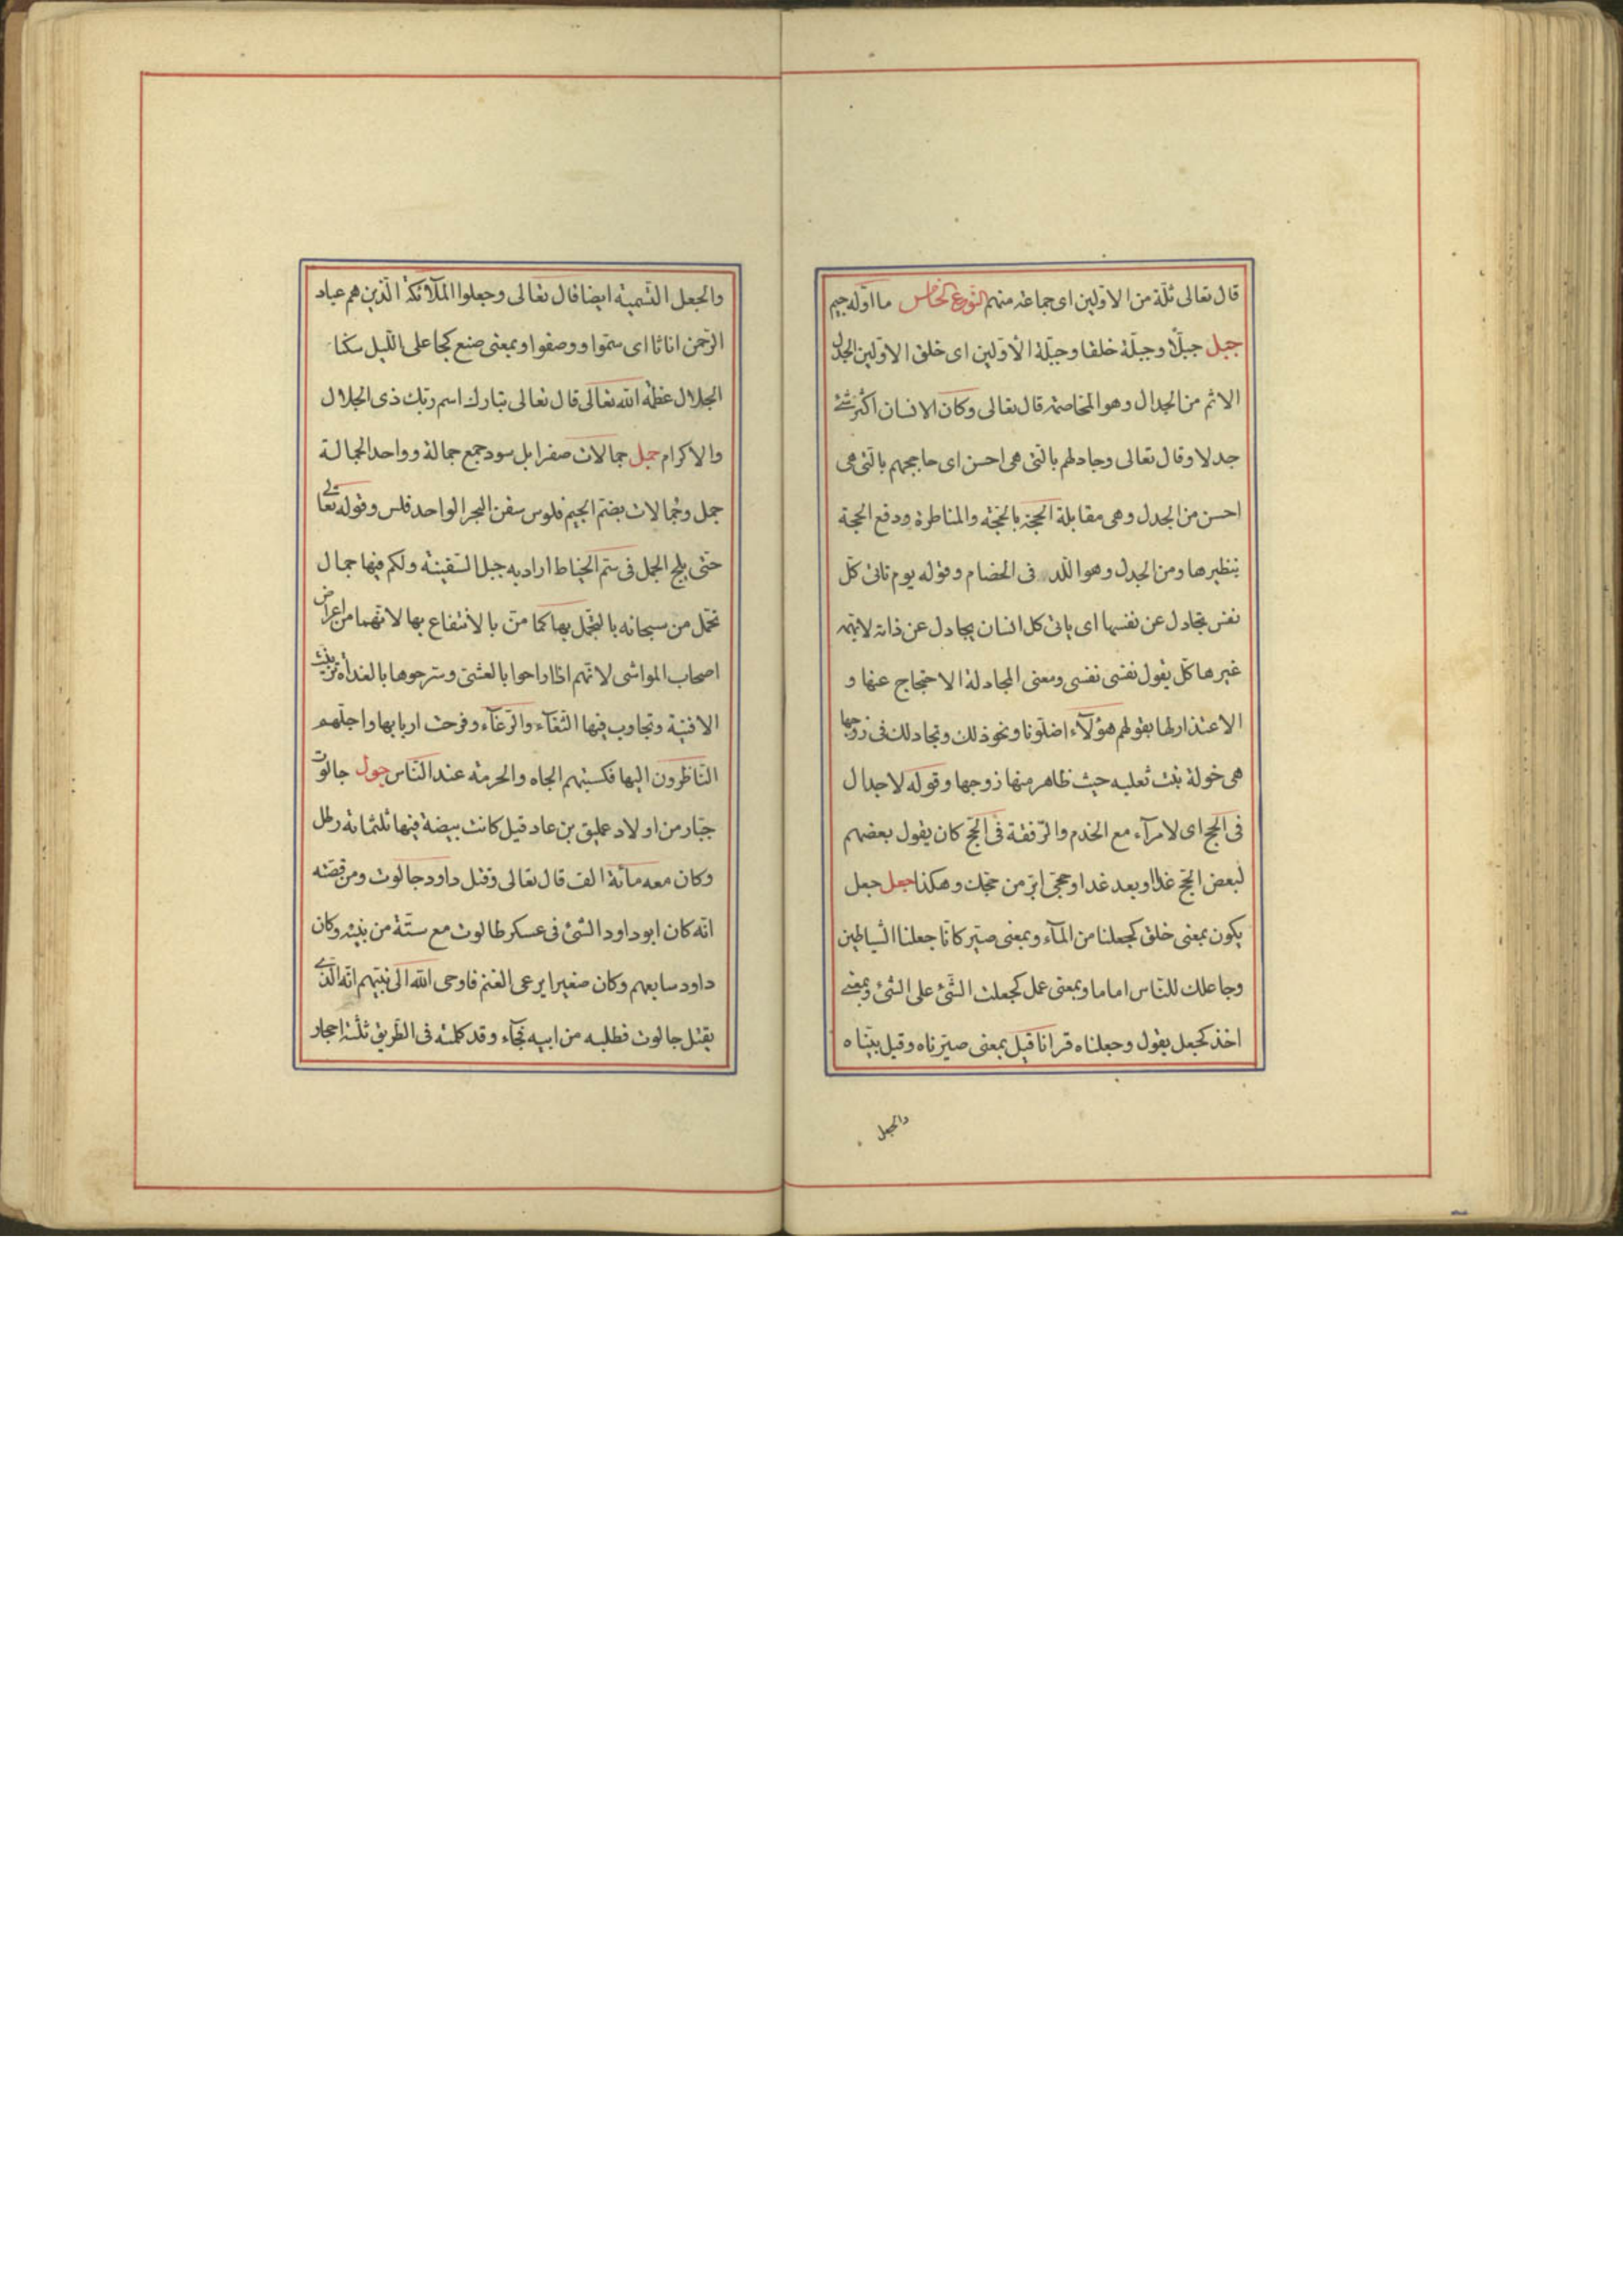 قال تعالى ثلّة من الاوّلين اى جماعة منهم النّوع الخامس ما اوّله جيم
جبل جبلّا وجبلّة خلقا وجبلّة الأوّلين اى خلق الاوّلين الجدل
الاثم من الجدال وهو المخاصمة قال تعالى وكان الانسان اكثر شئ
جدلا وقال تعالى وجادلهم بالتى هى احسن اى حاججهم بالتى هى
احسن من الجدل وهى مقابلة الحجّة بالحجّة والمناظرة ودفع الحجة
بنظيرها ومن الجدل وهو اللّدد فى الخصام وقوله يوم تاتى كلّ
نفس تجادل عن نفسها اى ياتى كل انسان يجادل عن ذاته لا يهمّه
غيرها كلّ يقول نفسى نفسى ومعنى المجادلة الاحتجاج عنها و
الاعتذار لها بقولهم هؤلآء اضلّونا ونحو ذلك وتجادلك فى زوجها
هى خولة بنت ثعلبه حيث ظاهر منها زوجها وقوله لا جدال
فى الحج اى لا مرآء مع الخدم والرّفقة فى الحجّ كان يقول بعضهم
لبعض الحجّ غدا او بعد غد او حجّى ابرّ من حجّك وهكذا جعل جعل
يكون بمعنى خلق كجعلنا من المآء وبمعنى صيّر كانّا جعلنا الشياطين
وجاعلك للنّاس اماما وبمعنى عمل كجعلت الشّئ على الشئ وبمعنى
اخذ كجعل يقول وجعلناه قرانا قيل بمعنى صيّرناه وقيل بيّنّاه
والجعل
والجعل التّسمية ايضا قال تعالى وجعلوا الملآئكة الّذين هم عباد
الرّحمن اناثا اى سمّوا ووصفوا وبمعنى صنع كجاعل اللّيل سكنا
الجلال عظمة الله تعالى قال تعالى تبارك اسم ربّك ذى الجلال
والاكرام جمل جمالات صفر ابل سود جمع جمالة وواحد الجمالة
جمل وجُمالات بضمّ الجيم قلوس سفن البحر الواحد قلس وقوله تعالى
حتّى يلج الجمل فى سّم الخياط اراد به حبل السّفينة ولكم فيها جمال
تجمّل منّ سبحانه بالتجمّل بها كما منّ بالأنتفاع بها لانّهما من اعراض
اصحاب المواشى لانّهم اذا راحوا بالعشىّ وسرّحوها بالغداة تزيّنت
الافنية وتجاوب فيها الثّغآء والرّغآء وفرحت اربابها واجلّهم
النّاظرون اليها فكسبتهم الجاه والحرمة عند النّاس جول جالوت
جبّار من اولاد عمليق بن عاد قيل كانت بيضة فيها ثلثمائة رطل
وكان معه مائة الف قال تعالى وقتل داود جالوت ومن قصّته
انّه كان ابو داود النبى فى عسكر طالوت مع ستّة من بنيه وكان
داود سابعهم وكان صغيرا يرعى الغنم فاوحى الله الى نبيّهم انّه الّذى
يقتل جالوت فطلبه من ابيه فجآء وقد كلمته فى الطّريق ثلثة احجار